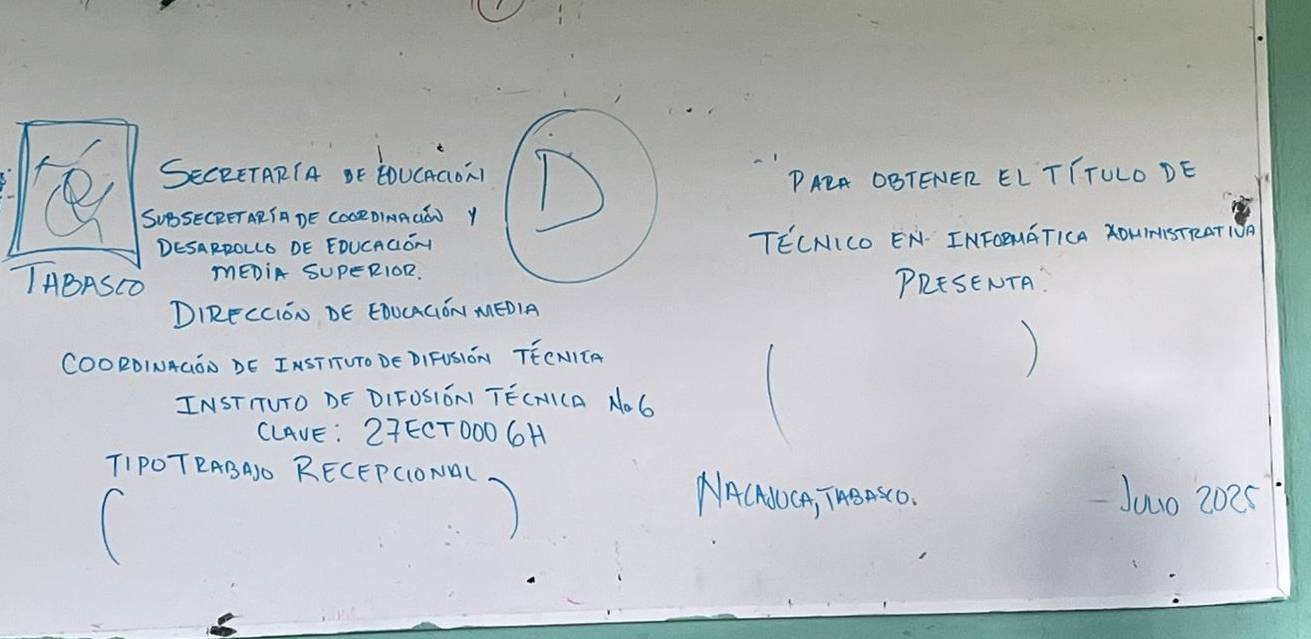 TABASCO
SECRETARÍA DE EDUCACIÓN
SUBSECRETARÍA DE COORDINACIÓN Y
DESARROLLO DE EDUCACIÓN
MEDIA SUPERIOR.
D
DIRECCIÓN DE EDUCACIÓN MEDIA
COORDINACIÓN DE INSTITUTO DE DIFUSIÓN TÉCNICA
INSTITUTO DE DIFUSIÓN TÉCNICA No 6
CLAVE: 27ECT0006H
TIPO TRABAJO RECEPCIONAL
( )
PARA OBTENER EL TÍTULO DE
TÉCNICO EN INFORMÁTICA ADMINISTRATIVA
PRESENTA:
( )
NACAJUCA, TABASCO. - JULIO 2025